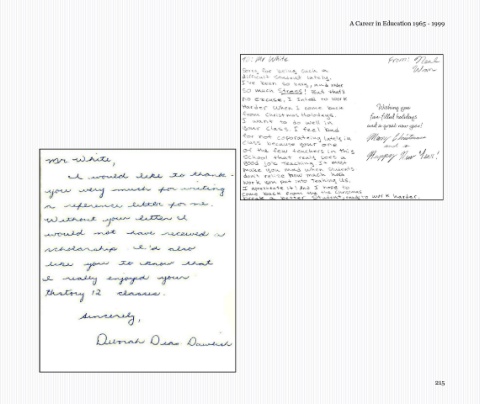 A Career in Education 1965 - 1999
To: Mr White
From:
Sorry for being such a
difficult student lately.
I've been so busy, and under
so much stress! But that's
no excuse, I intend to work
harder when I come back
from Christmas Holidays.
I want to do well in
your class. I feel bad
for not cooperating lately in
class because your one
of the few teachers in this
school that really does a
good job teaching. It must
make you mad when students
don't relize how much hard
work you put into teaching us.
I apologize
come back from the Christmas
break a better student, ready to work harder.
Wishing you
fun filled holidays
and a great new year!
Merry Christmas
and a
Happy New Year!
Mr White,
I would like to thank-
you very much for writing
a reference letter for me.
Without your letter I
would not have received a
scholarship. I'd also
like you to know that
I really enjoyed your
History 12 classes.
Sincerely,
Deborah
215